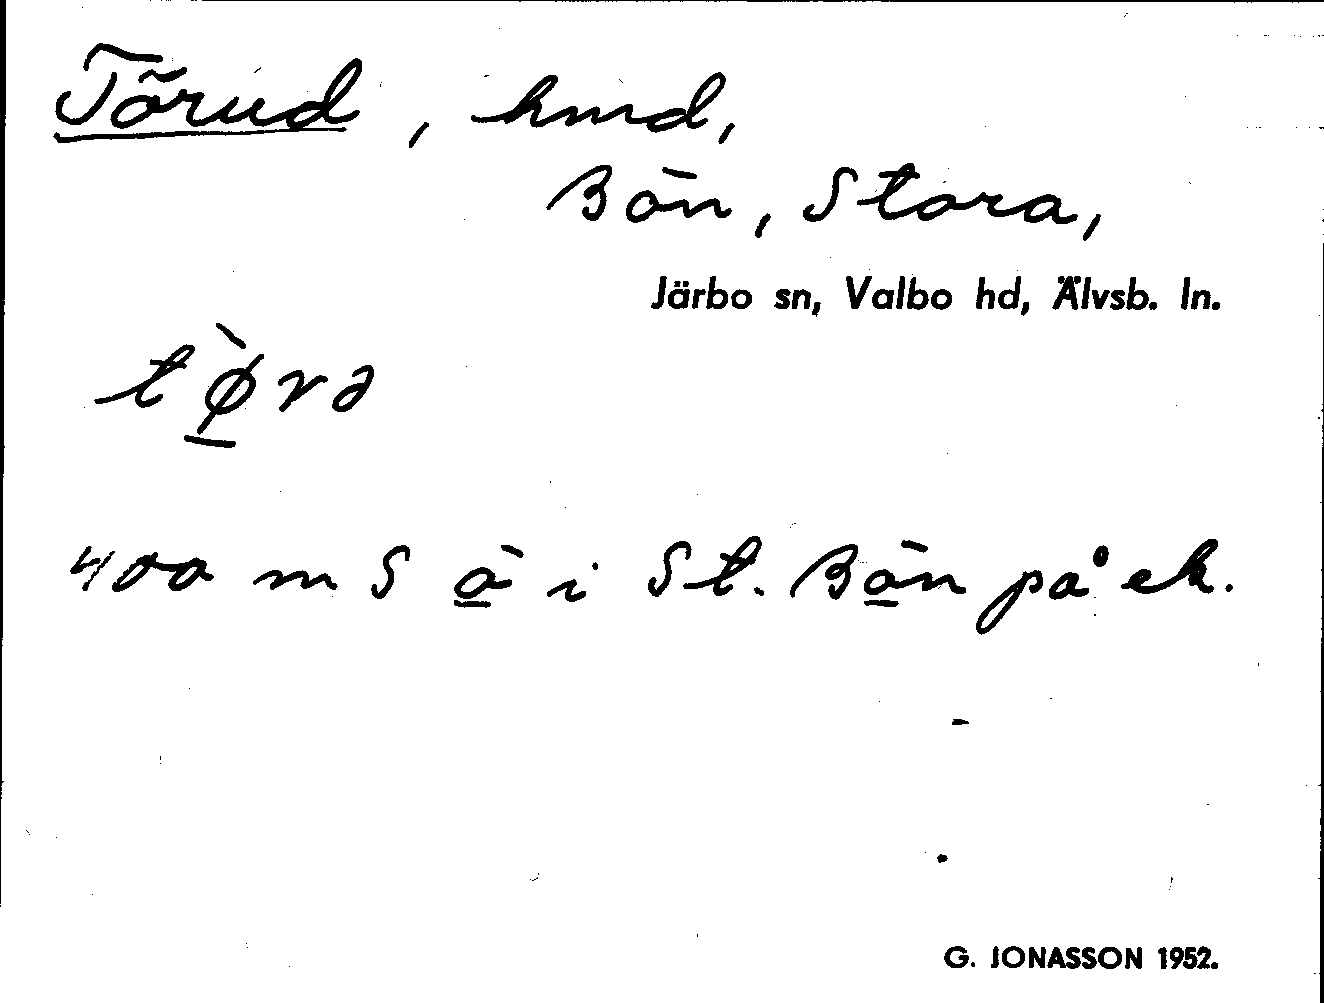 Törud, hmd,
Bön, Stora,
Järbo sn, Valbo hd, Älvsb. ln.
tø̠̀rə
400 m S ö̠ i St. Bö̠n på ek.
G. JONASSON 1952.